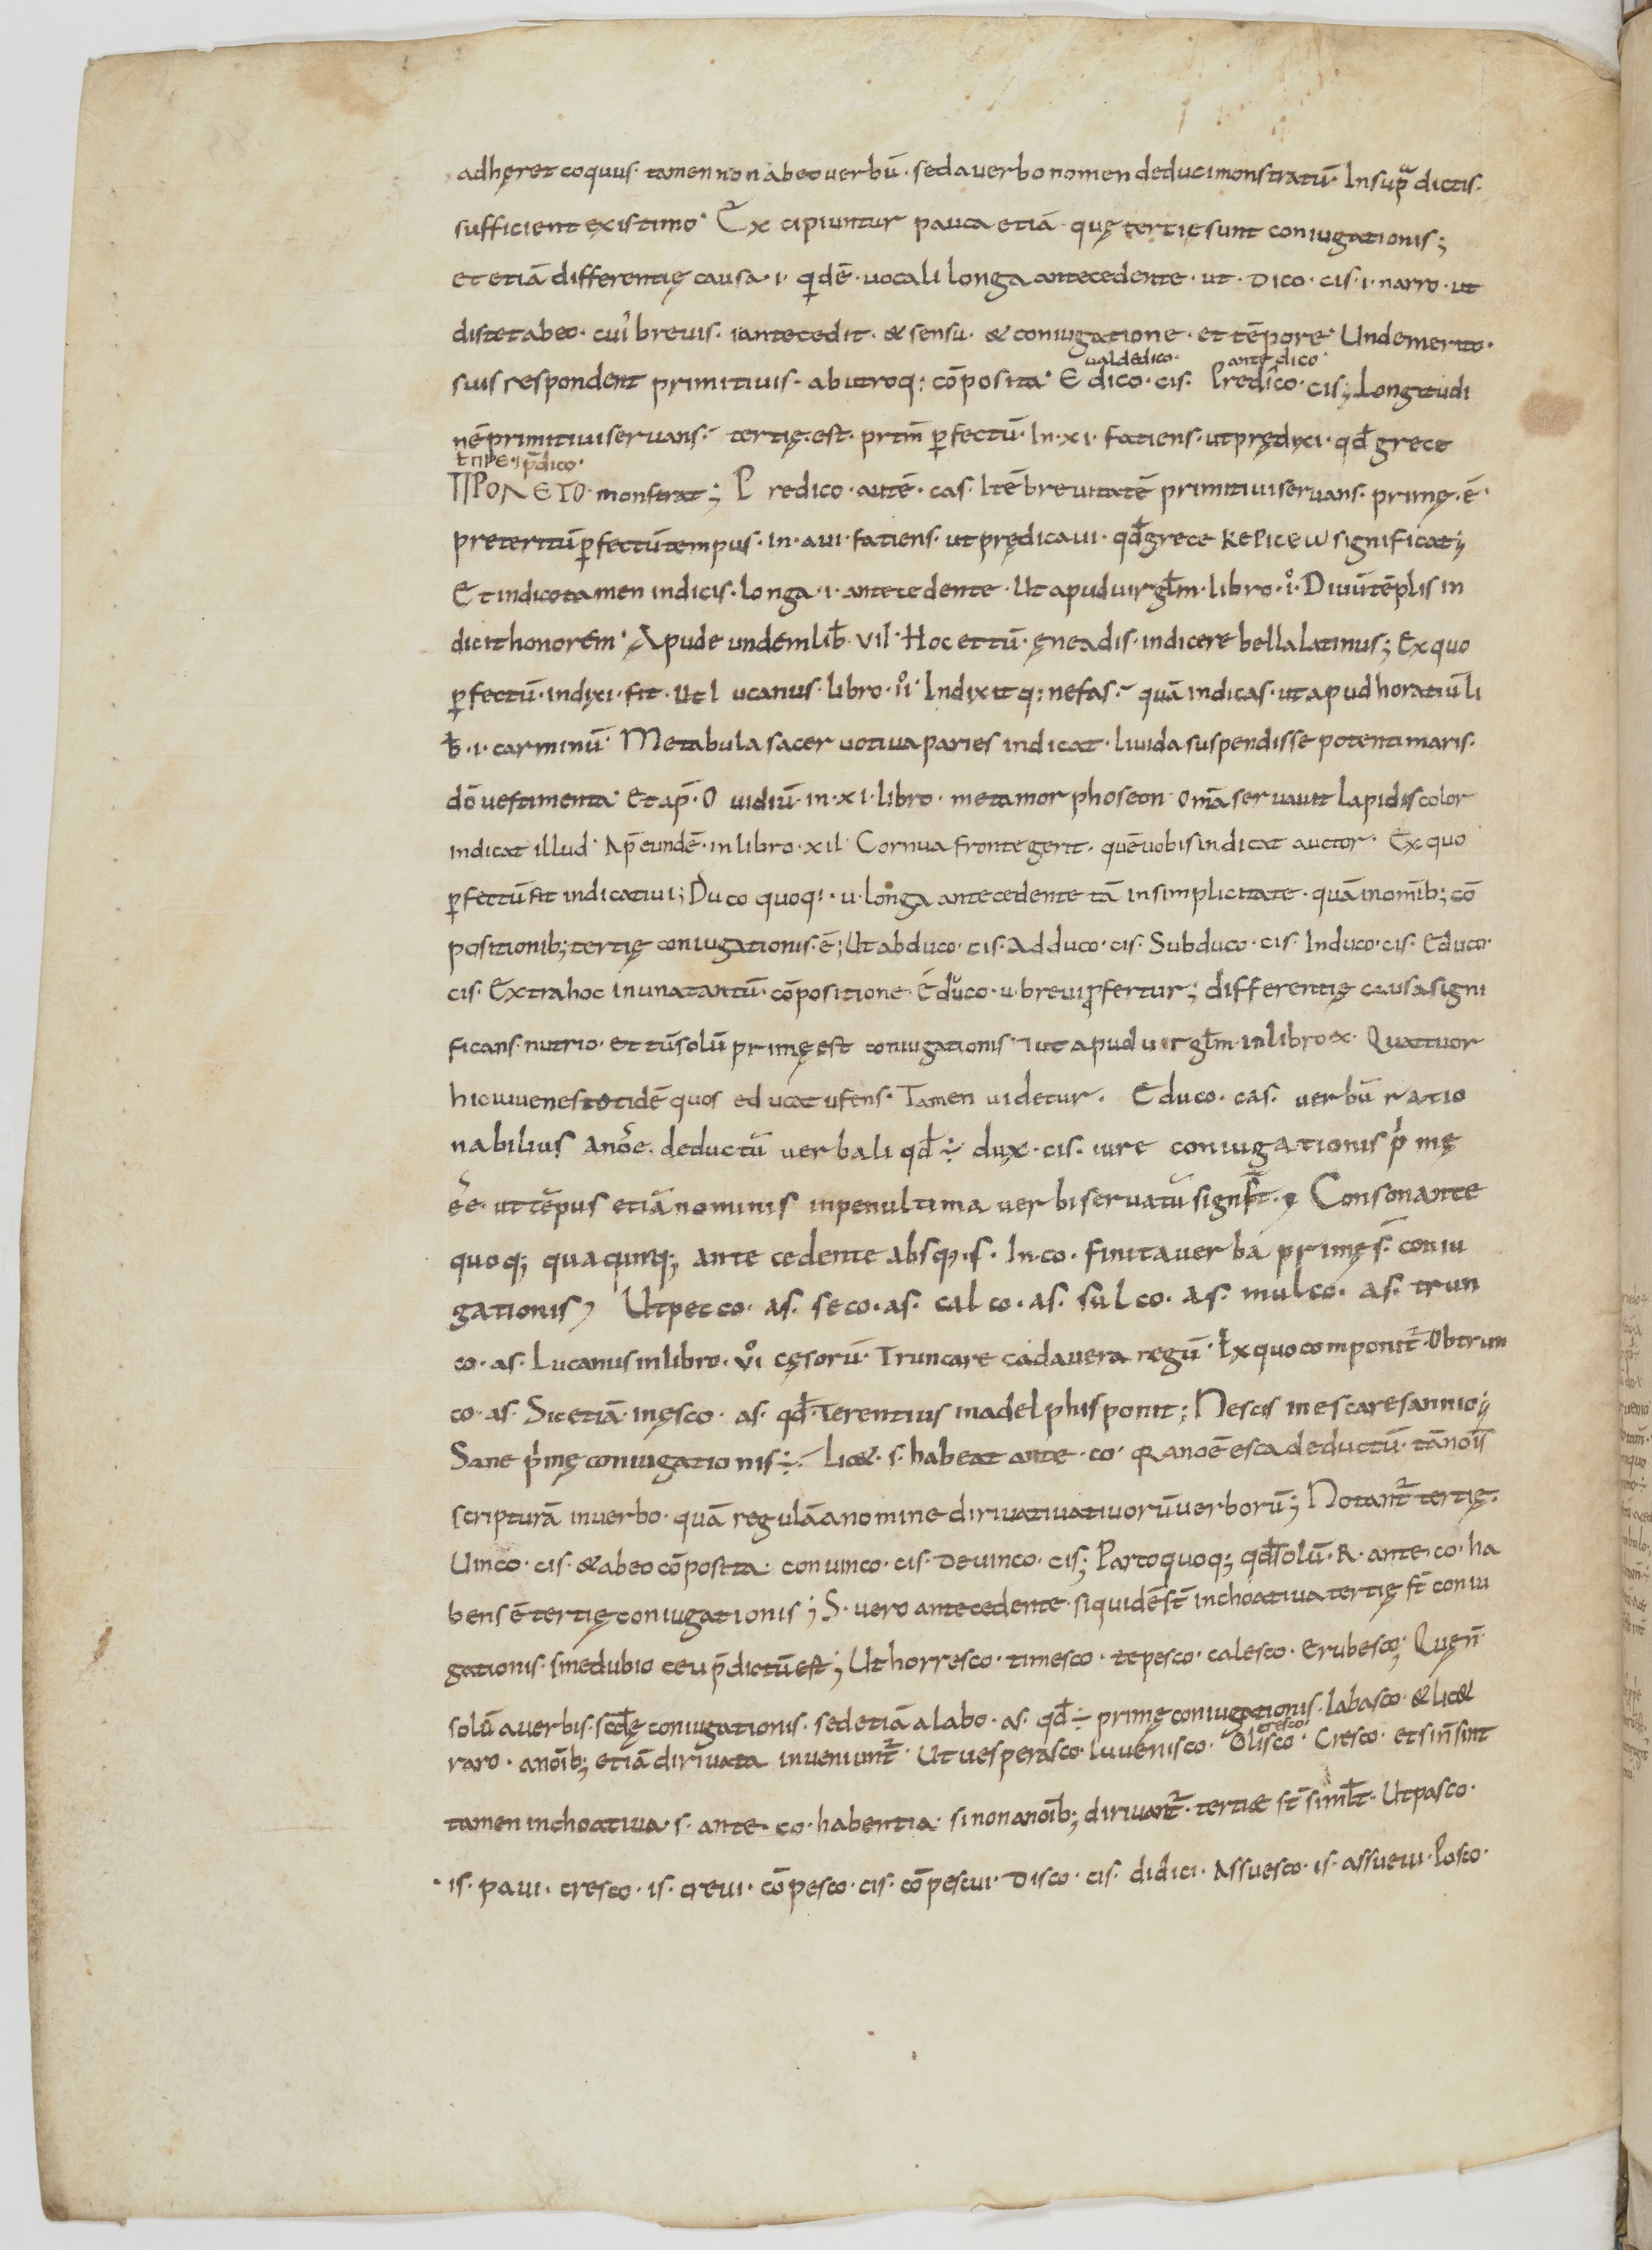 adhęret coquus· tamen non ab eo verbū· sed a verbo nomen deduci monstratū· In supᷓ dictis·
sufficient existimo· Ex cipiuntur pauca etiā quę tertię sunt coniugationis;
et etiā differentię causa· i· qͥdē· vocali longa antecedente· ut· Dico· cis· i· narro· ut
distet abeo· cuî brevis· i antecedit· & sensu· & coniugatione· et tēpore· Unde merito·
valde dico· ante dico·
suis respondent primitivis· ab utroq: cōposita· E dico· cis· Predîco· cis; Longitudi
nē primitivi servans· tertię· est· prīm ꝑfectū· In· xi· fatiens· ut prędixi· qđ grece
p̄dico·
monstrat; P redico· autē· cas· Itē brevitatē primitivi servans· primę· ē·
preteritū ꝑfectū tempus· in· avi· fatiens· ut prędicavi· qđ grece KePICEW significat;
Et indico tamen indicis· longa· i· antecedente· Ut apud virgłm· libro· i̊· Divū tēplis in
dicit honorem· Apud eundem lib̄· VII· Hoc et tū· ęneadis· indicere bella latinus; Ex quo
ꝑfectū· indixi· fit· Ut l ucanus· libro· Indixitq: nefas· quā indicas· ut apud horatiū li
b̄· i· carminū· Me tabula sacer votiva paries indicat· livida suspendisse potenti maris·
dō vestimenta· Et ap̄· O vidiū· in· xi· libro· metamor phoseon omā servavit lapidis color
indicat illud· Ap̄ eundē· in libro· xii· Cornua fronte gerit· quē vobis indicat auctor· Ex quo
ꝑfectū fit indicativi; Duco quoq:· u· longa antecedente tā in simplicitate· quā in omīb; cō
positionib; tertię coniugationis· ē; Ut abduco· cis· Adduco· cis· Subduco· cis· Induco· cis· Educo·
cis· Extra hoc in una tantū· cōpositione· Edŭco· u· brevi ꝓfertur; differentię causa signi
ficans· nutrio· et tū solū primę est coniugationis· ut apud virgłm· in libro· x· Quattuor
hic iuvenes totidē quos educat ufens· Tamen videtur· Educo· cas· verbū ratio
nabilius a deductū verbali qđ ÷ dux· cis· iure coniugationis pͥmę
ut tēpus etiā nominis in penultima verbi servatū Consonante
quoq; quacunq; ante cedente absq;· s· In· co· finita verba primę s̄· coniu
gationis; Ut pecco· as· seco· as· calco· as· sulco· as· mulco· as· trun
co· as· Lucanus in libro· cęsorū· Truncare cadavera regū· Ex quo componit᷑· Obtrun
co· as· Sic etiā· inęsco· as· qđ· Terentius in adelphis ponit; Nescis inescare sannio;
Sane pͥmę coniugationis ÷· lic&· s· habeat ante· co· a noē esca deductū· tā nois̄
scripturā in verbo· quā regulā a nomine dirivativativorū verborū; Notant᷑ tertię·
Vinco· cis· & ab eo cōposita· convinco· cis· Devinco· cis; Parco quoq; qđ solū· R· ante· co· ha
bens ē tertię coniugationis; S· vero antecedente· siquidē st̄ inchoativa tertię st̄ coniu
gationis· sine dubio ceu p̄dictū est; Ut horresco· timesco· tepesco· calesco· Erubesco; Quę n̄
solū a verbis· scd̄ę coniugationis· sed etiā a labo· as· qđ ÷ primę coniugationis· labasco· & lic&
cresco·
raro· a noīb; etiā dirivata inveniunt᷑· Ut vesperasco· Iuvenisco· Olisco· Cresco· et si n̄ sint
tamen inchoativa· s· ante· co· habentia· si non a noīb; dirivant᷑· tertiæ st̄ simłt· Ut pasco·
is· pavi· cresco· is· crevi· cōpesco· cis· cōpescui· Disco· cis· didici· Assuesco· is· assuevi· Posco·